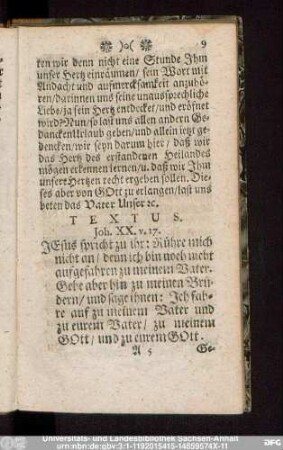 ❊ )o( ❊ 9
ten wir denn nicht eine Stunde Ihm
unser Hertz einräumen/ sein Wort mit
Andacht und aufmercksamkeit anzuhö-
ren/ darinnen uns seine unaussprechliche
Liebe/ ja sein Hertz entdecket/ und eröfnet
wird? Nun/ so last uns allen andern Ge-
dancken Urlaub geben/ und allein jetzt ge-
dencken/ wir seyn darum hier/ daß wir
das Hertz des erstandenen Heilandes
mögen erkennen lernen/ u. daß wir Ihm
unsere Hertzen recht ergeben sollen. Die-
ses aber von GOtt zu erlangen/ last uns
beten das Vater Unser ꝛc.
TEXTUS.
Joh. XX. v. 17.
JEsus spricht zu ihr: Rühre mich
nicht an/ denn ich bin noch nicht
aufgefahren zu meinem Vater.
Gehe aber hin zu meinen Brü-
dern/ und sage ihnen: Ich fah-
re auf zu meinem Vater und
zu eurem Vater/ zu meinem
GOtt/ und zu eurem GOtt.
A 5 Ge-
Universitäts- und Landesbibliothek Sachsen-Anhalt
urn:nbn:de:gbv:3:1-1192015415-14859574X-11
DFG